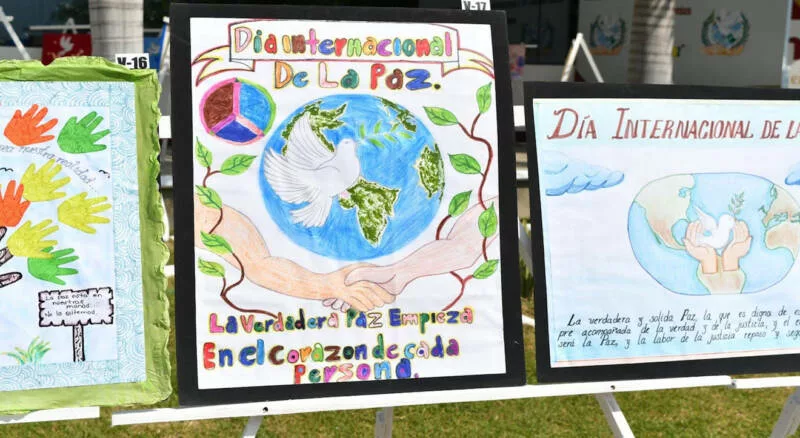 V-16
nuestra realidad
La paz está en
nuestras
manos...
No la soltemos.
V-17
Día Internacional
De La Paz.
La Verdadera Paz Empieza
En el Corazón de cada
Persona.
Día Internacional de la
La verdadera y solida Paz, la que es digna de
pre acompañada de la verdad, y de la justicia, y el
será la Paz, y la labor de la justicia reposo y